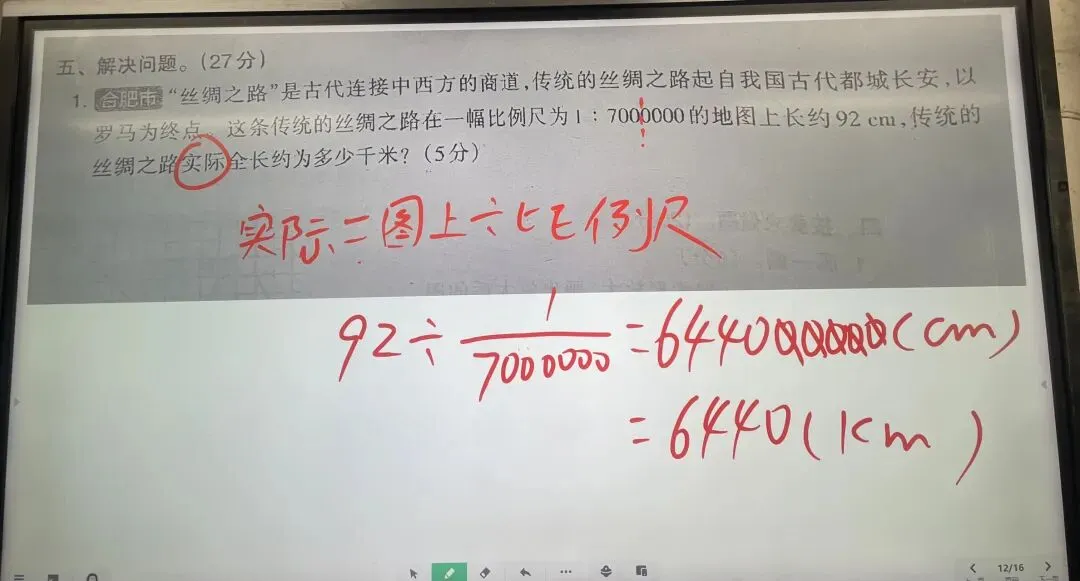 五、解决问题。(27分)
1. 合肥市 “丝绸之路”是古代连接中西方的商道,传统的丝绸之路起自我国古代都城长安,以
罗马为终点。这条传统的丝绸之路在一幅比例尺为1∶7000000的地图上长约92 cm,传统的
丝绸之路实际全长约为多少千米?(5分)
实际=图上÷比例尺
92÷1/7000000=644000000(cm)
=6440(km)
12/16